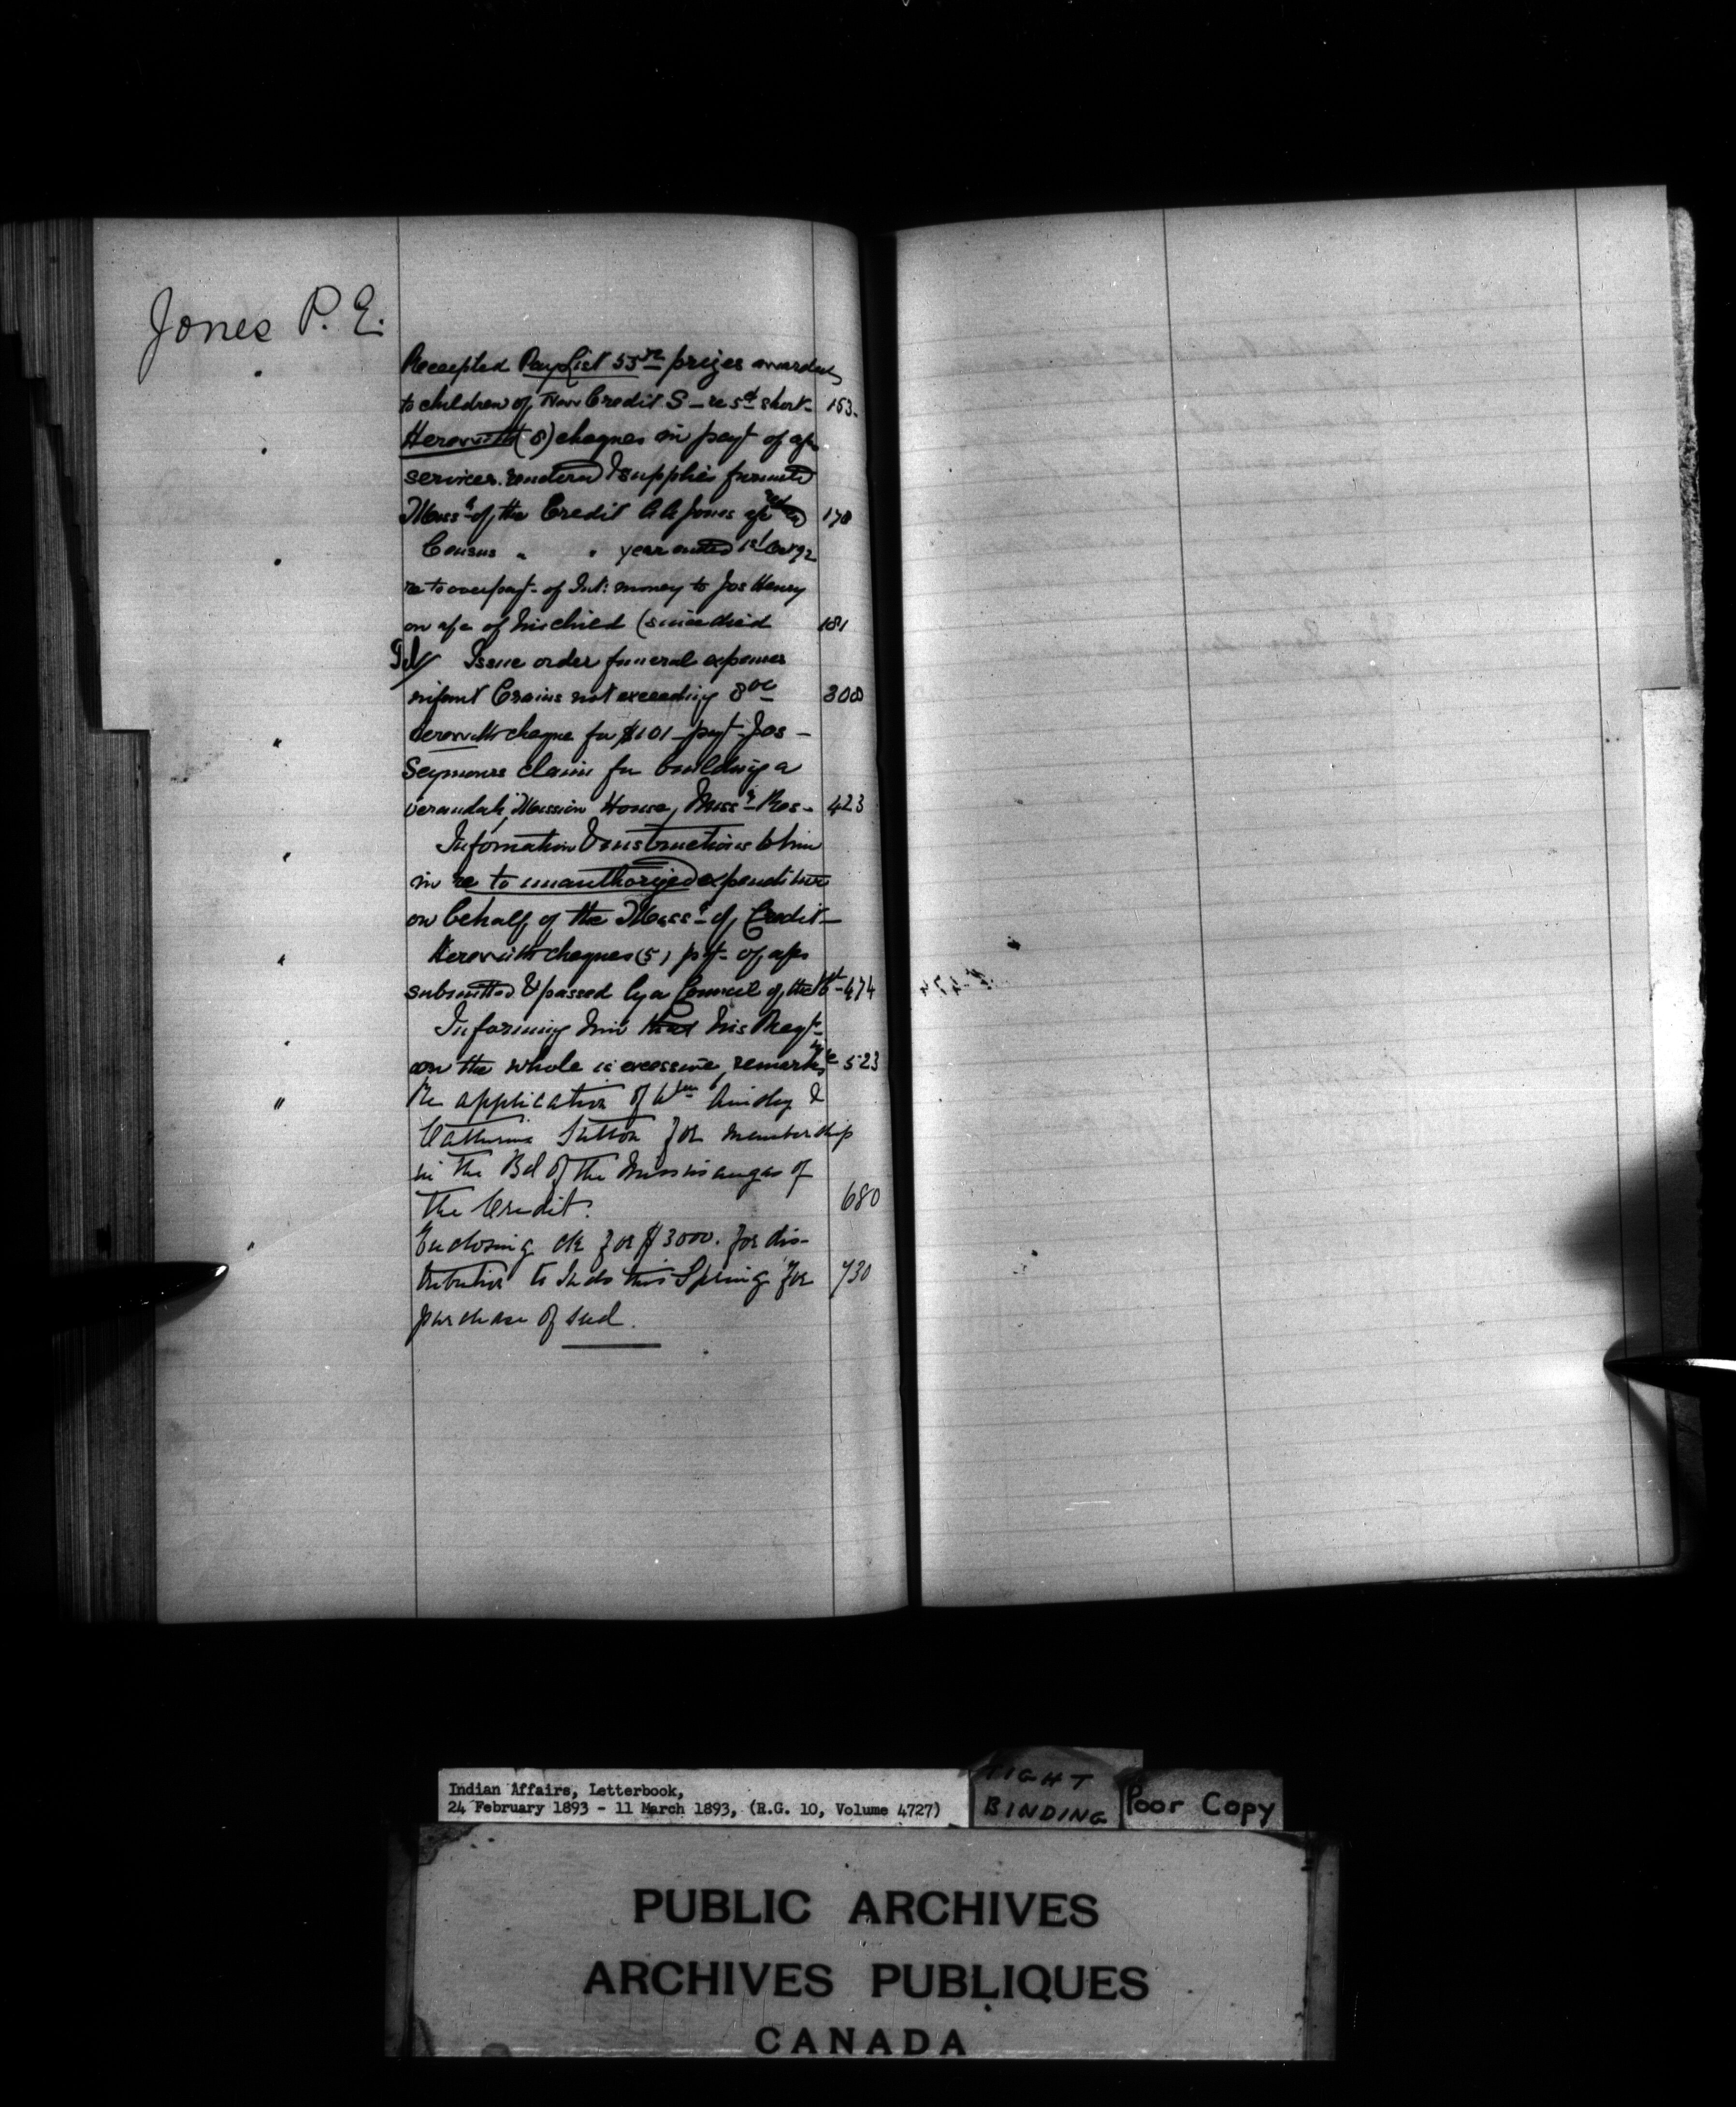 Jones P. E.
Receipted Pay List 53 prizes awarded
to children of New Credit S – re 5 short – 153.
Herewith (8) cheques in payt of a/cs
services rendered & supplies
Miss of the Credit A A Jones 170
Census " " year ended 1st
re to overpayt of Int: money to Jos Henry
on a/c of his child (since died 181
Tel/ Issue order funeral expenses
infant Crains not exceeding 8 00 308
Herewith cheque for $101 – payt – Jos –
Seymours claim for building a
verandah, Mission House, Miss Res – 423
Information & instructions to him
in re to unauthorized expenditure
on behalf of the Miss of Credit –
Herewith cheques (5) pt – of a/cs
submitted & passed by a Council of the – 474
Informing him that his Reqt –
on the whole is excessive, remarks 523
Re application of Wm &
Catherine Sutton for membership
in the Bd of the Mississaugas of
the Credit. 680
Enclosing ck for $3000. for dis-
tribution to Inds this Spring for 730
purchase of seed.
Indian Affairs, Letterbook,
24 February 1893 - 11 March 1893, (R.G. 10, Volume 4727)
TIGHT
BINDING
Poor Copy
PUBLIC ARCHIVES
ARCHIVES PUBLIQUES
CANADA